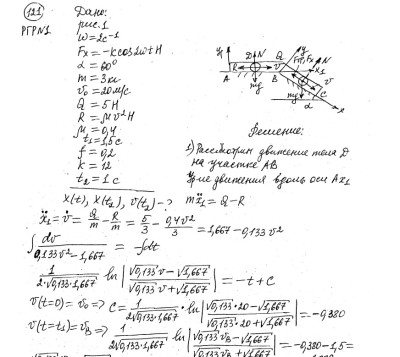 121
РГР N1
Дано:
рис. 1
ω = 2c⁻¹
Fx = -k cos2ωt H
α = 60°
m = 3кг
v₀ = 20м/с
Q = 5 H
R = μv² H
μ = 0,4
t₁ = 1,5c
f = 0,2
k = 12
t₂ = 1 c
x(t), x(t₂), v(t₂) - ?
y₁ R D N v Q A B mg
y Fтр Fx N x₁ v mg C α x
Решение:
1) Рассмотрим движение тела D
на участке AB
Ур-ие движения вдоль оси Ax₁
mẍ₁ = Q - R
ẍ₁ = v̇ = Q/m - R/m = 5/3 - 0,4v²/3 = 1,667 - 0,133 v²
∫ dv/(0,133v² - 1,667) = -∫dt
1/(2√0,133·1,667) ln|(√0,133 v - √1,667)/(√0,133 v + √1,667)| = -t + C
v(t=0) = v₀ => C = 1/(2√0,133·1,667) · ln|(√0,133·20 - √1,667)/(√0,133·20 + √1,667)| = -0,380
v(t=t₁) = v_B => 1/(2√0,133·1,667) ln|(√0,133 v_B - √1,667)/(√0,133 v_B + √1,667)| = -0,380 - 1,5 =